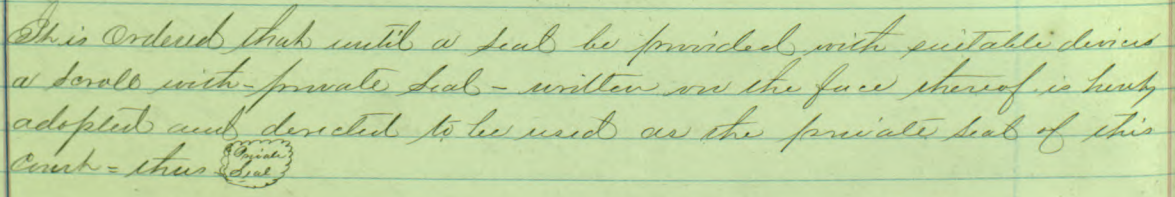 It is Ordered that until a seal be provided with suitable devices
a scroll with - private seal - written on the face thereof is hereby
adopted and directed to be used as the private seal of this
Court = thus Private
Seal